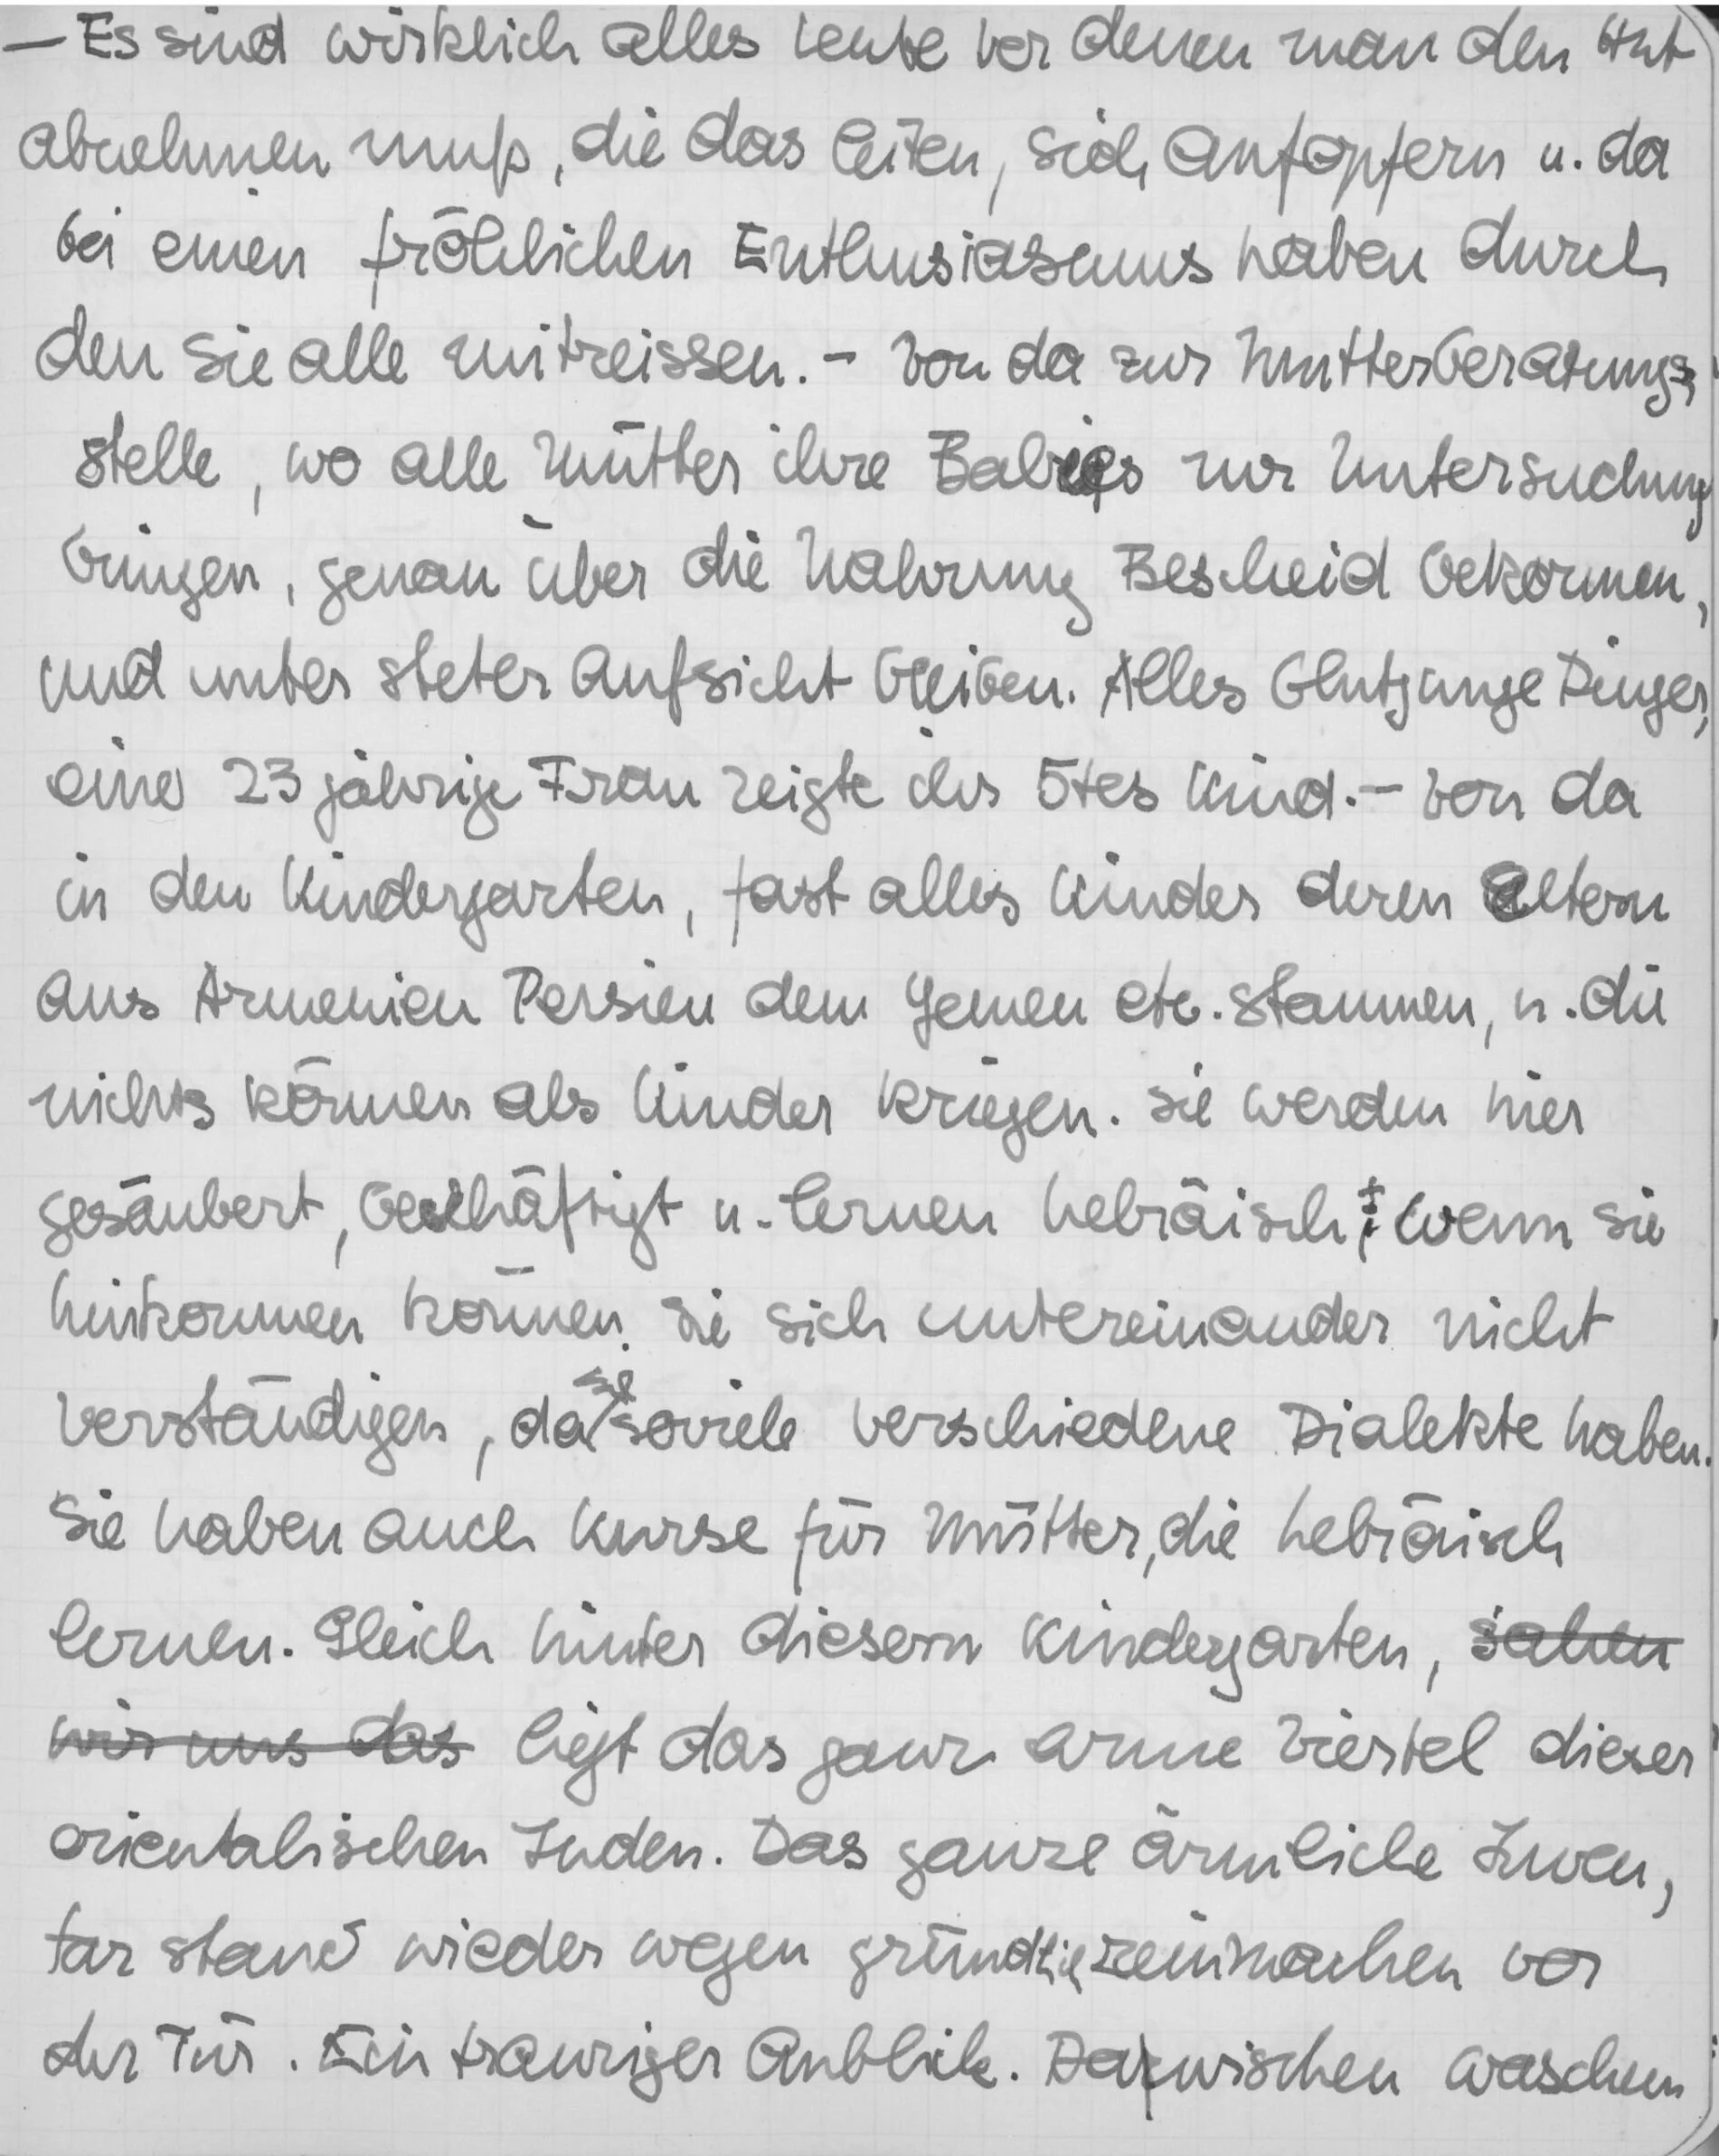 — Es sind wirklich alles Leute vor denen man den Hut
abnehmen muß, die das leiten, sich aufopfern u. da
bei einen fröhlichen Enthusiasmus haben durch
den sie alle mitreissen. – Von da zur Mutterberatungs,
stelle, wo alle Mütter ihre Babies zur Untersuchung
bringen, genau über die Nahrung Bescheid bekommen,
und unter steter Aufsicht bleiben. Alles blutjunge Dinger,
eine 23 jährige Frau zeigte ihr 5tes Kind. – Von da
in den Kindergarten, fast alles Kinder deren Eltern
aus Armenien Persien dem Yemen etc. stammen, u. die
nichts können als Kinder kriegen. Sie werden hier
gesäubert, beschäftigt u. lernen hebräisch; wenn sie
hinkommen können sie sich untereinander nicht
verständigen, da sie soviele verschiedene Dialekte haben.
Sie haben auch Kurse für Mütter, die hebräisch
lernen. Gleich hinter diesem Kindergarten, sahen
wir uns das liegt das ganz arme Viertel dieser
orientalischen Juden. Das ganze ärmliche Inven,
tar stand wieder wegen gründlich reinmachen vor
der Tür. Ein trauriger Anblick. Dazwischen waschen